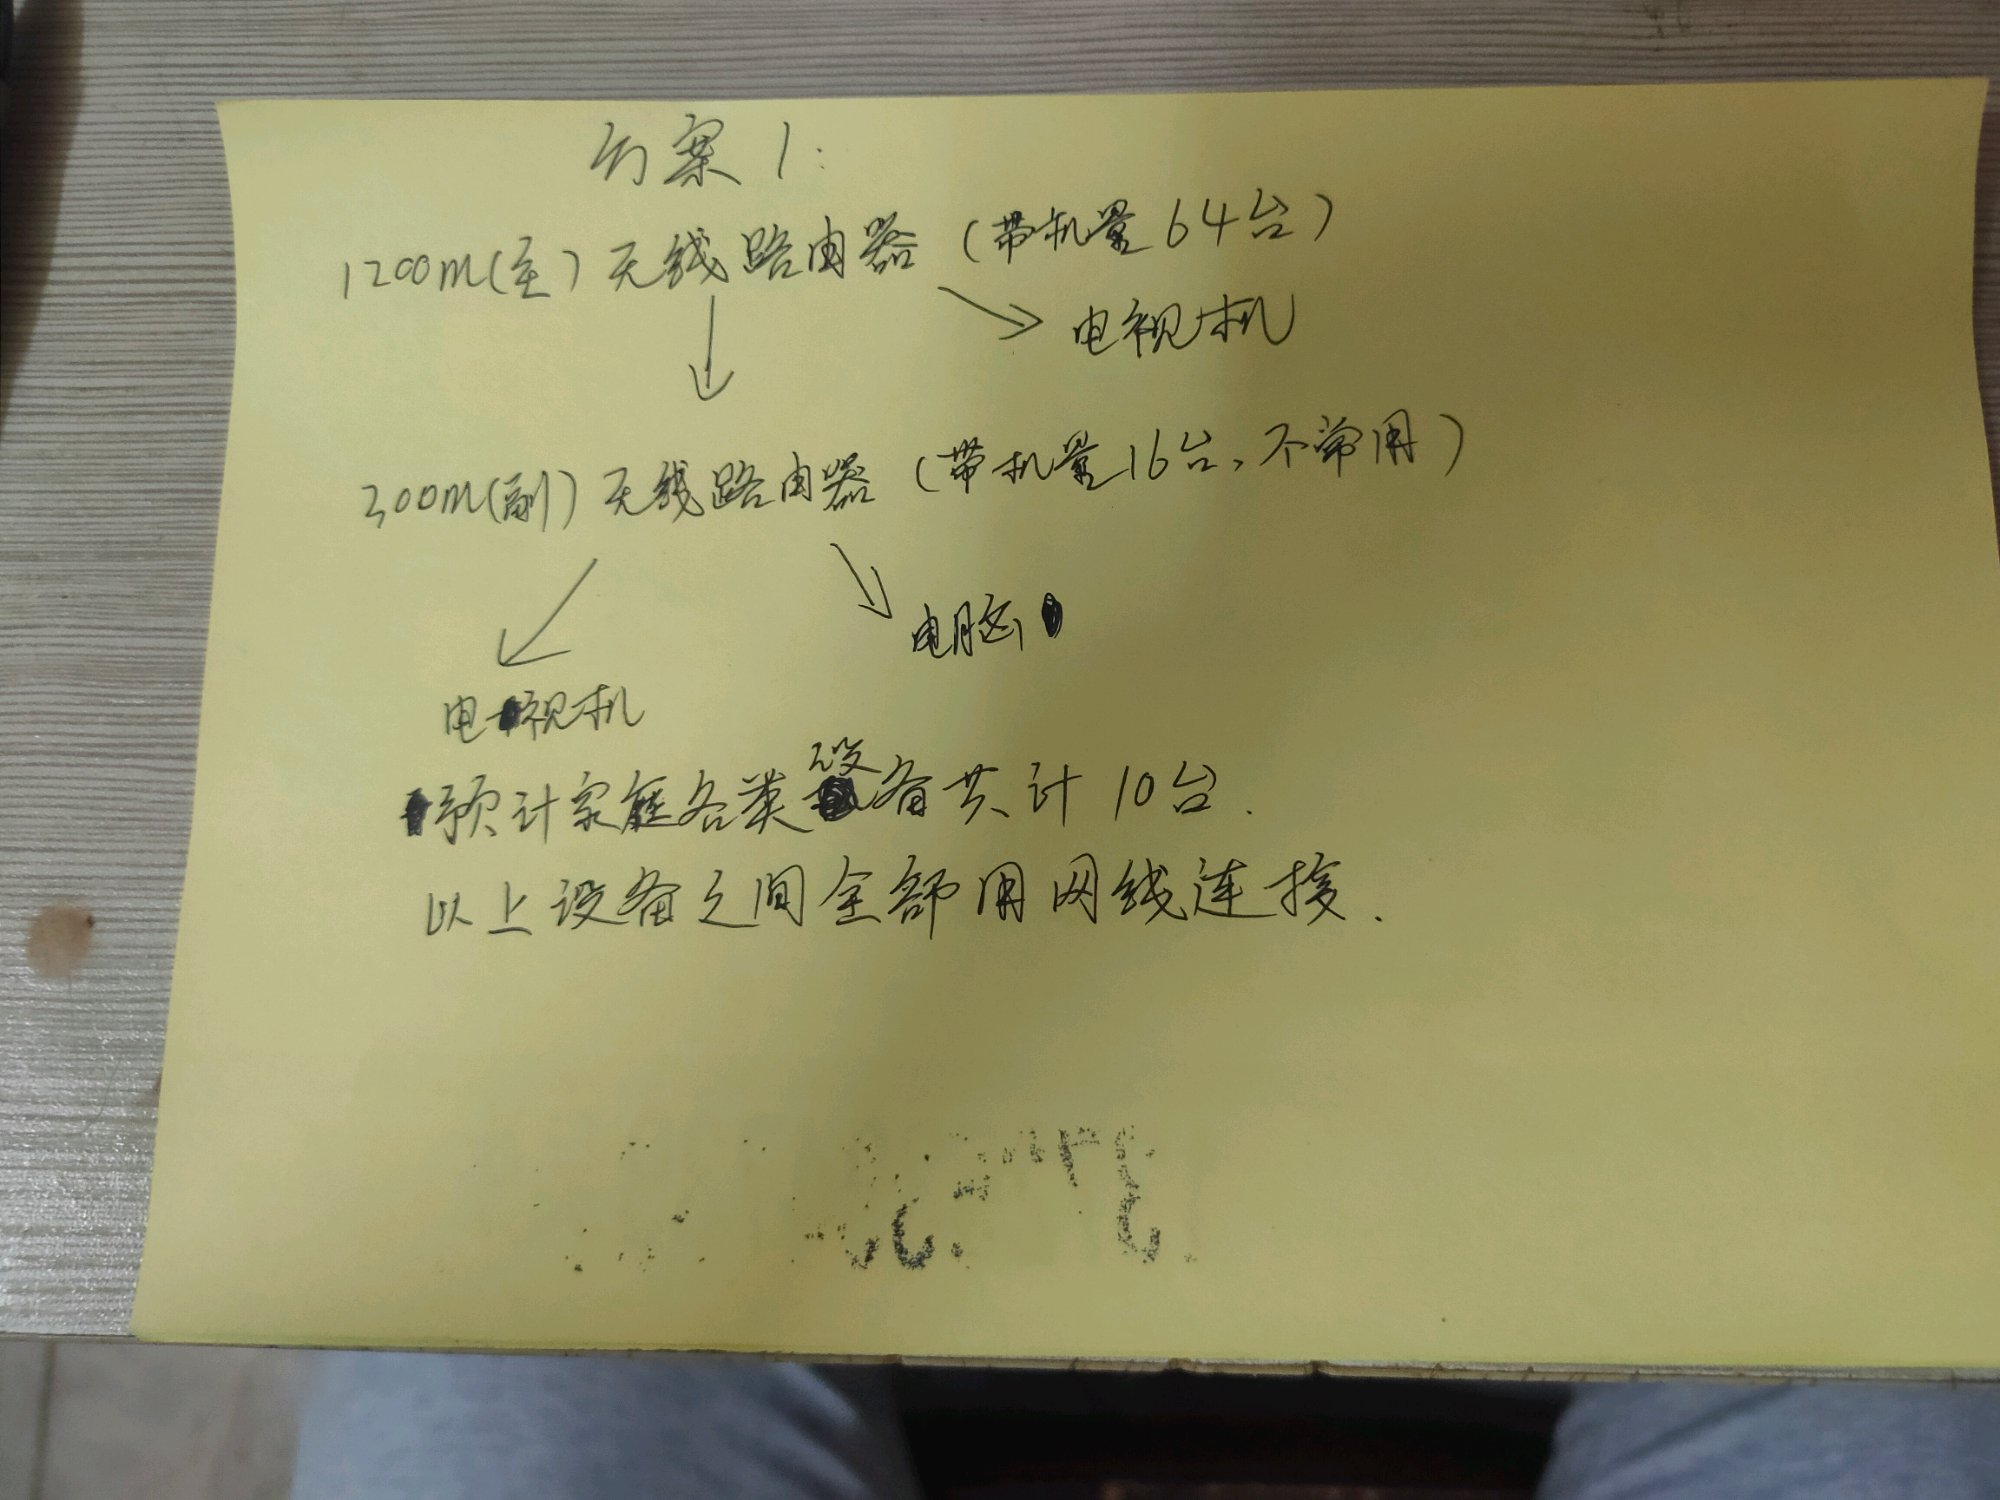 方案1:
1200m(主)无线路由器(带机量64台)
电视机
300m(副)无线路由器(带机量16台、不常用)
电脑
电视机
预计家庭各类设备共计10台.
以上设备之间全部用网线连接.